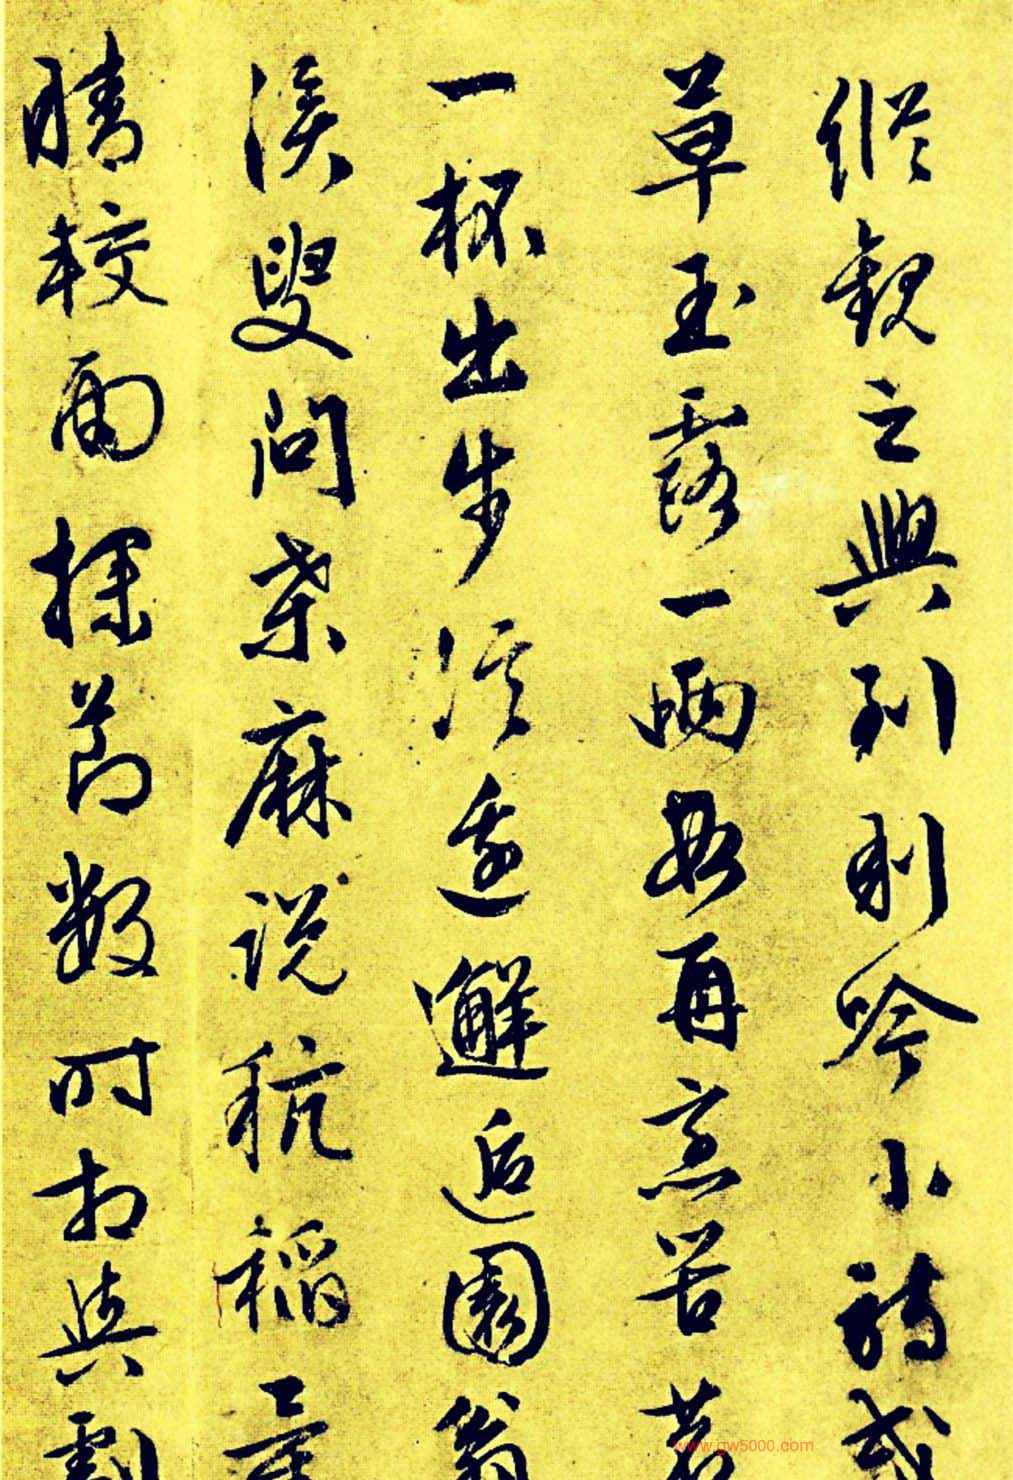 縱觀之興到則吟小詩或
草玉露一兩段再烹苦茗
一杯出步溪邊邂逅園翁
溪叟問桑麻説秔稻量
晴較雨探節數時相與劇
www.gw5000.com